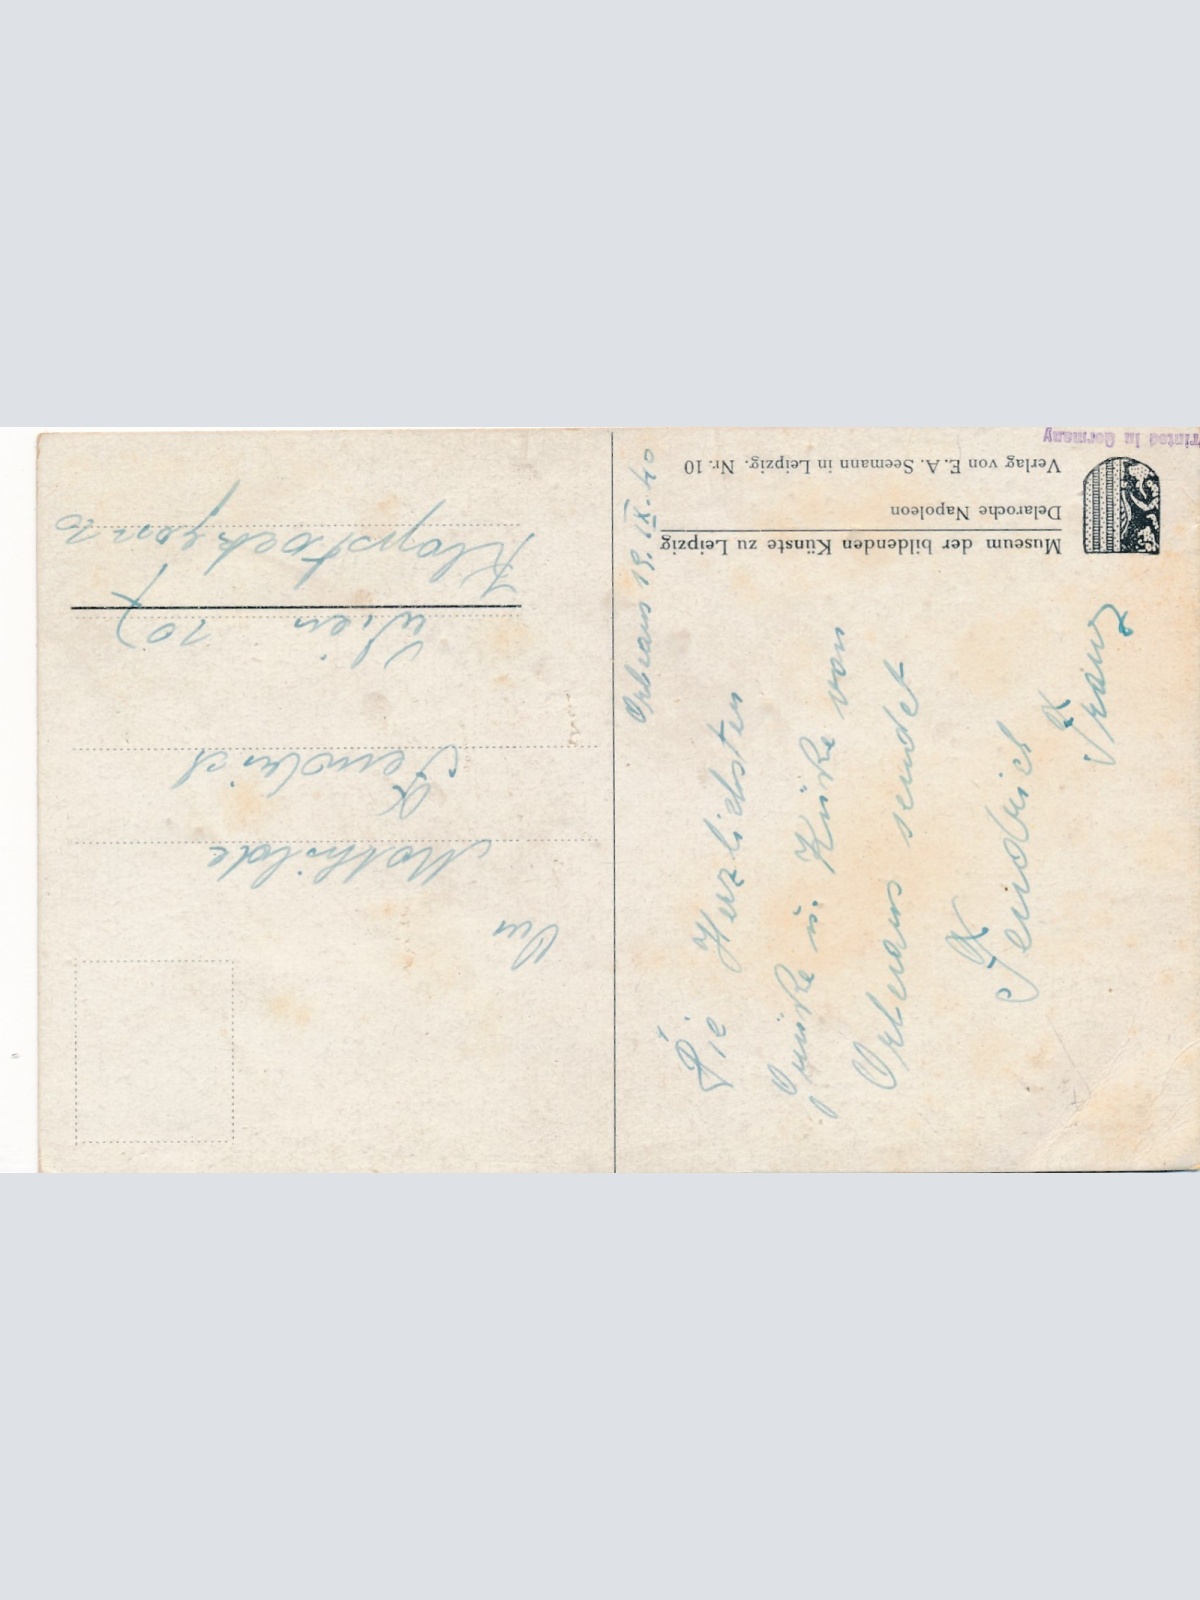 Printed in Germany
Museum der bildenden Künste zu Leipzig
Delaroche Napoleon
Verlag von E. A. Seemann in Leipzig. Nr. 10
Orleans 19. IX. 40
Die Herzlichsten
u. Küße von
Orleans sendet
Franz
An
Mathilde
Wien 107